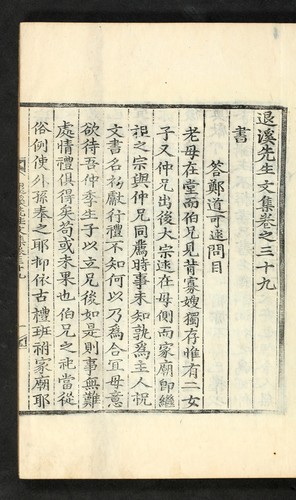 退溪先生文集卷之三十九
書
答鄭道可逑問目
老母在堂而伯兄見背寡嫂獨存惟有二女
子又仲兄出後大宗逑在母側而家廟卽繼
祖之宗與仲兄同薦時事未知孰爲主人祝
文書名初獻行禮不知何以乃爲合宜母意
欲待吾仲季生子以立兄後如是則事無難
處情禮俱得矣苟或未果也伯兄之祀當從
俗例使外孫奉之耶抑依古禮班祔家廟耶